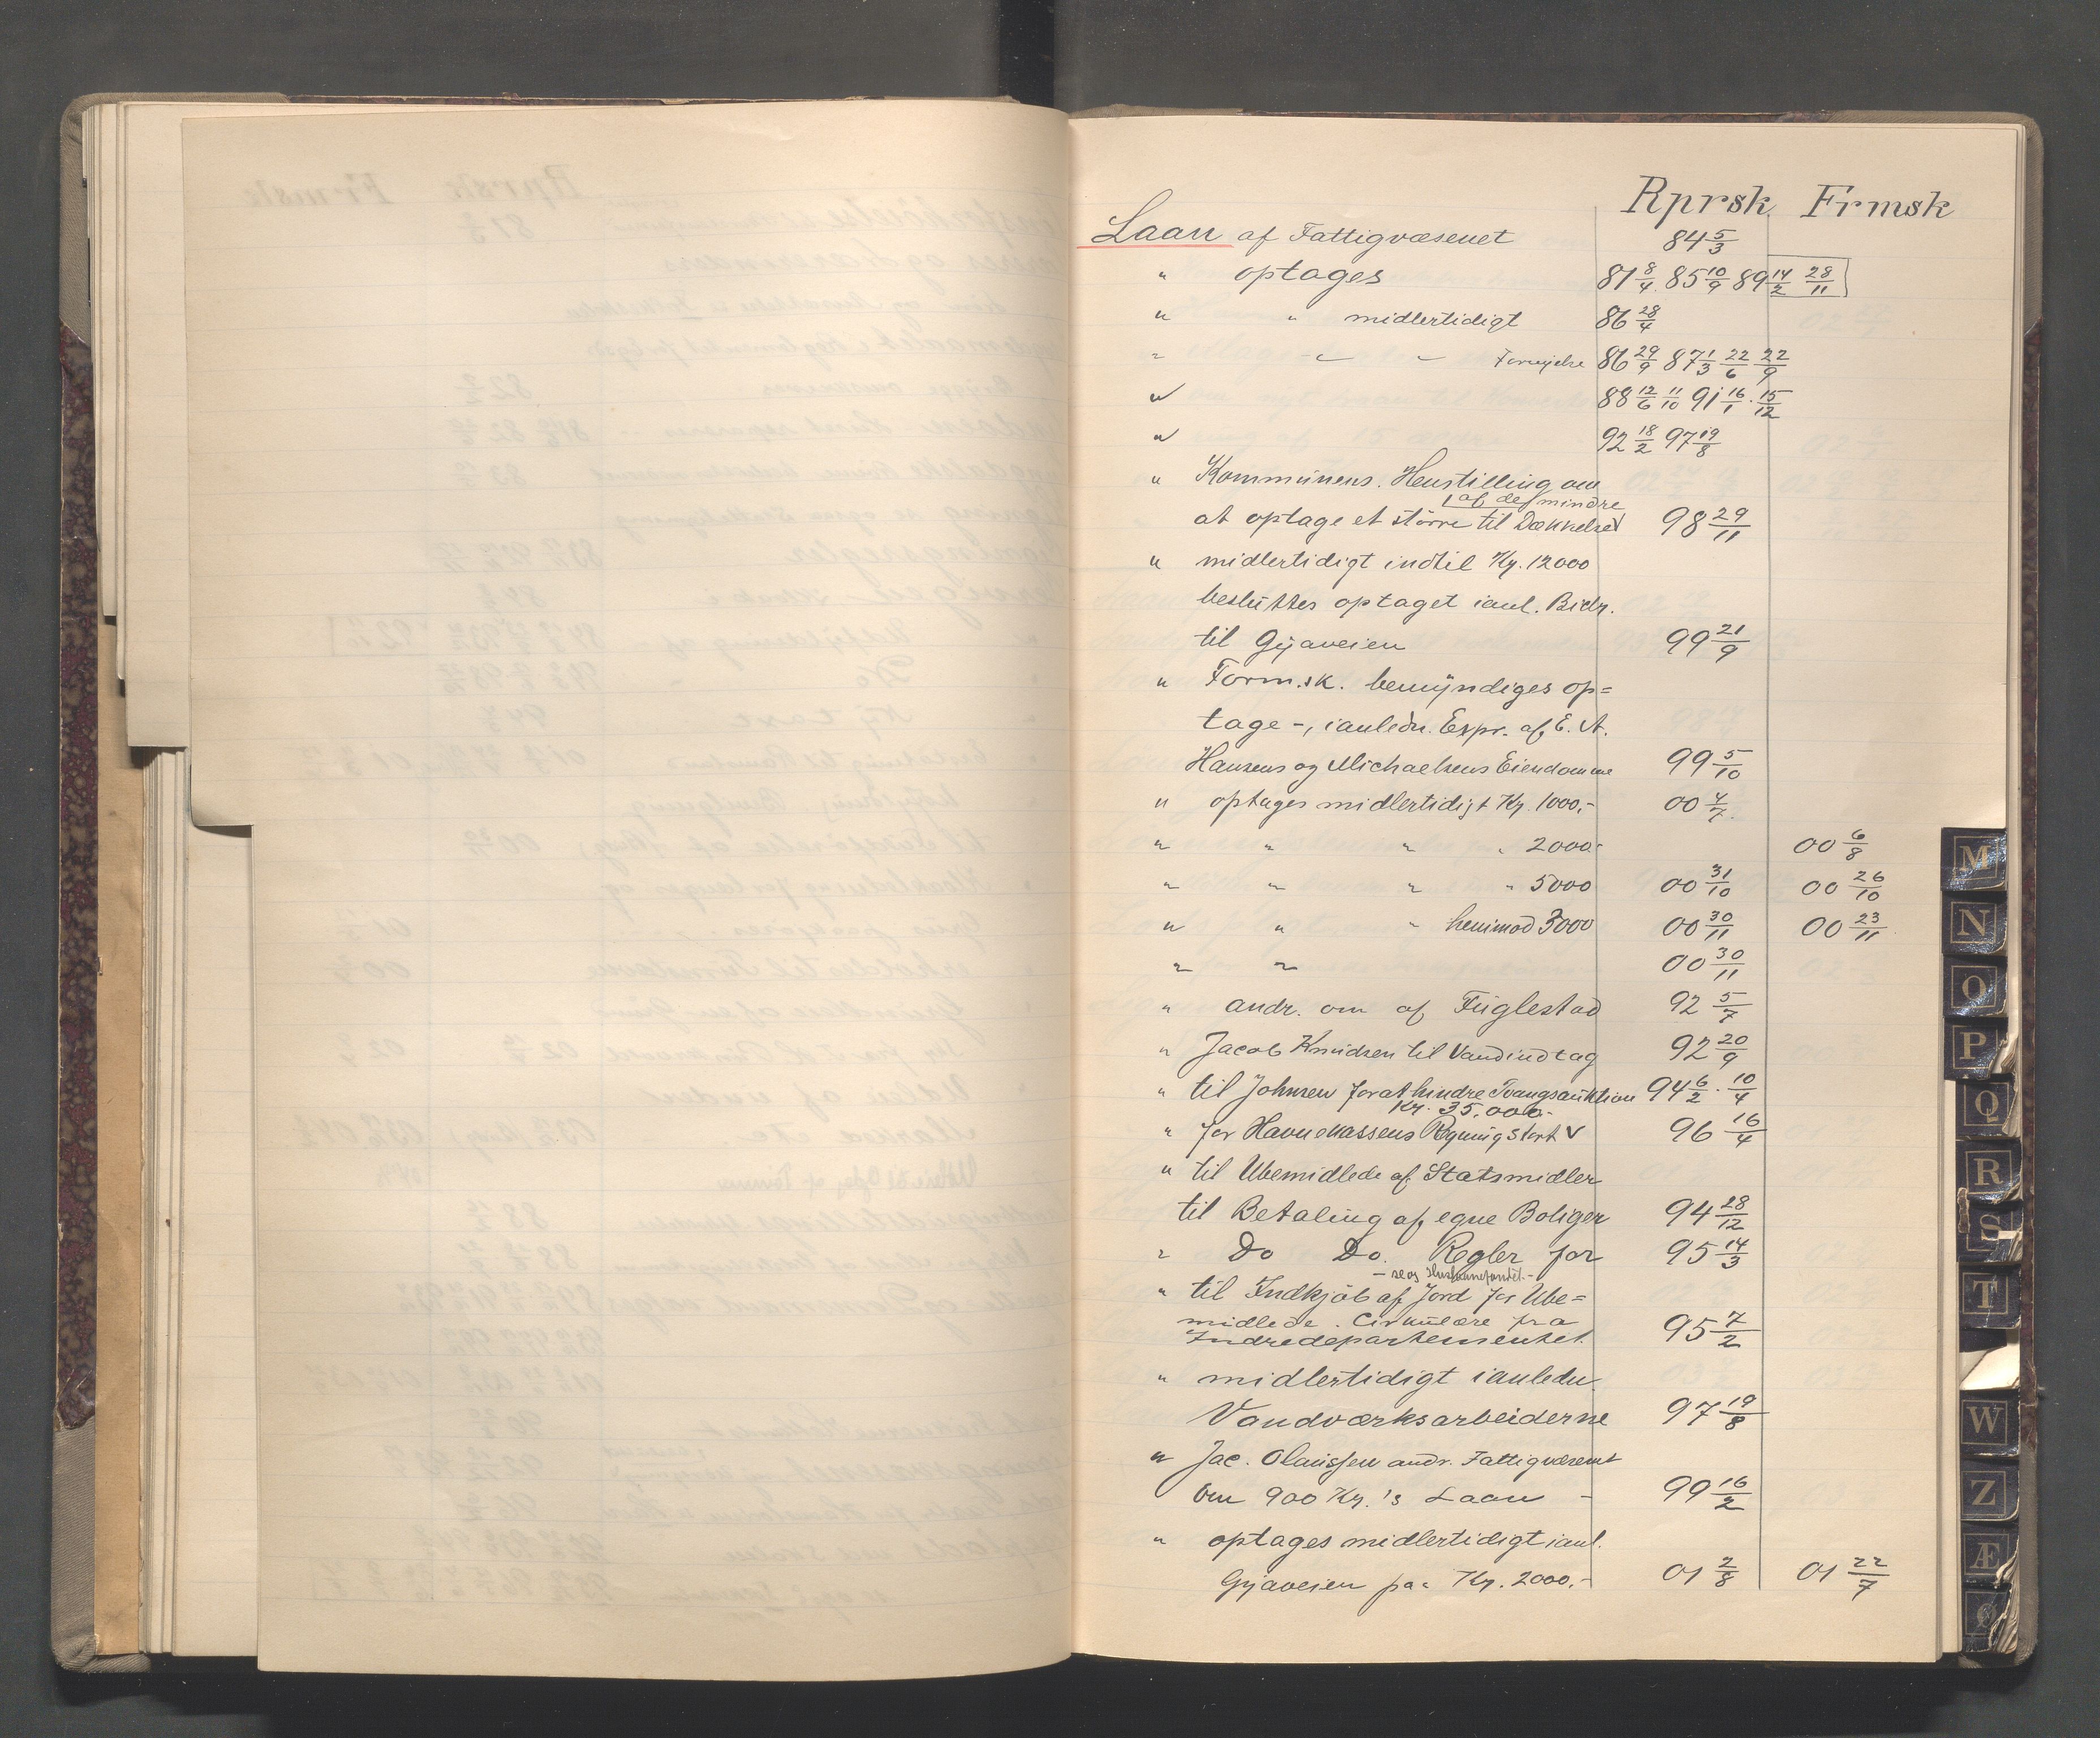 Rprsk. Frmsk
Laan af Fattigvæsenet 84 5/3
" optages 81 8/4 85 10/9 89 14/2 28/11
" " midlertidigt 86 28/4
" " " Fornyelse 86 29/9 87 1/3 22/6 22/9
" 88 12/6 11/10 91 16/1 . 15/12
" 92 18/2 97 19/8
" Kommunens. Henstilling om
af de mindre
at optage et större til Dækkelse 98 29/11
" midlertidigt indtil Kr. 12000
besluttes optaget ianl. Bidr.
til Gyaveien 99 21/9
" Form.sk. bemyndiges op=
tage -, ianledn. Expr. af E. A.
Hansens og Michaelsens Eiendomme 99 5/10
" optages midlertidigt Kr. 1000,- 00 4/7.
" " " " 2000.- 00 6/8
" " " " 5000 00 31/10 00 26/10
" " " henimod 3000 00 30/11 00 23/11
" " 00 30/11
" andr. om af Fuglestad 92 5/7
" Jacob Knudsen til Vandindtag 92 20/9
" til Johnsen for at hindre Tvangsauktion 94 6/2 . 10/4
Kr. 35.000.-
" for Havnekassens Regning stort V 96 16/4
" til Ubemidlede af Statsmidler
til Betaling af egne Boliger 94 28/12
" Do Do. Regler for 95 14/3
- se og Huslaanefondet. -
" til Indkjöb af Jord for Ube=
midlede. Cirkulære fra
Indredepartementet. 95 7/2
" midlertidigt ianledn.
Vandværksarbeiderne 97 19/8
" Jac. Olaussen andr. Fattigvæsenet
om 900 Kr.'s Laan - 99 16/2
" optages midlertidigt ianl.
Gyaveien paa Kr. 2000.- 01 2/8 01 22/7
M
N
O
P
Q
R
S
T
W
Z
Æ
Ø